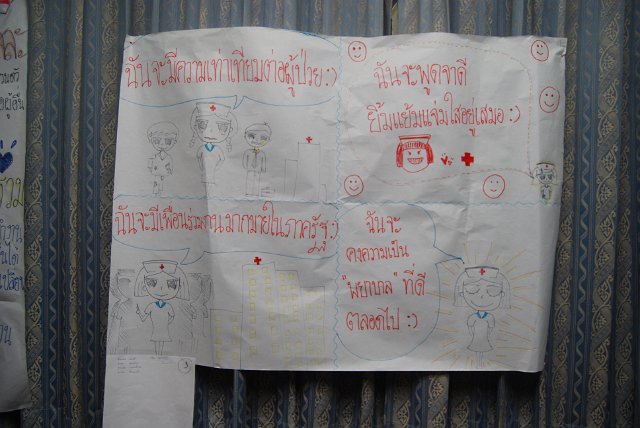 ฉันจะมีความเท่าเทียมต่อผู้ป่วย :)
ฉันจะพูดจาดี
ยิ้มแย้มแจ่มใสอยู่เสมอ :)
ฉันจะมีเพื่อนร่วมงานมากมายในภาครัฐ :)
ฉันจะ
คงความเป็น
"พยาบาล" ที่ดี
ตลอดไป :)
3